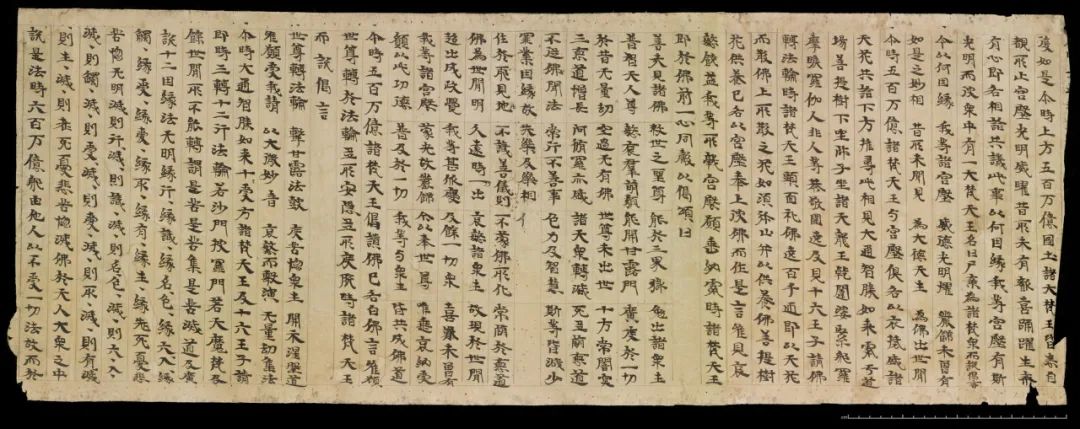 復如是尒時上方五百万億國土諸大梵王皆悉自
覩所止宮殿光明威曜昔所未有歡喜踊躍生希
有心即各相詣共議此事以何因緣我等宮殿有斯
光明而彼衆中有一大梵天王名曰尸棄為諸梵衆而說偈言
今以何因緣　我等諸宮殿　威德光明耀　嚴飾未曾有
如是之妙相　昔所未聞見　為大德天生　為佛出世間
尒時五百万億諸梵天王与宮殿俱各以衣祴盛諸
天花共詣下方推尋此相見大通智勝如來處于道
場菩提樹下坐師子坐諸天龍王乾闥婆緊那羅
摩睺羅伽人非人等恭敬圍遶及見十六王子請佛
轉法輪時諸梵天王頭面礼佛遶百千迊即以天花
而散佛上所散之花如須弥山并以供養佛菩提樹
花供養已各以宮殿奉上彼佛而作是言唯見哀
愍饒益我等所獻宮殿願垂納處時諸梵天王
即於佛前一心同聲以偈頌曰
善哉見諸佛　救世之聖尊　能於三界獄　勉出諸衆生
普智天人尊　愍哀群萌類　能開甘露門　廣度於一切
於昔无量劫　空過无有佛　世尊未出世　十方常闇冥
三惡道增長　阿脩羅亦盛　諸天衆轉減　死多墮惡道
不從佛聞法　常行不善事　色力及智慧　斯等皆減少
罪業因緣故　失樂及樂想
住於邪見法　不識善儀則　不蒙佛所化　常墮於惡道
佛為世間眼　久遠時乃出　哀愍諸衆生　故現於世間
超出成正覺　我等甚欣慶　及餘一切衆　喜歎未曾有
我等諸宮殿　蒙光故嚴飾　今以奉世尊　唯垂哀納受
願以此功德　普及於一切　我等与衆生　皆共成佛道
尒時五百万億諸梵天王偈讚佛已各白佛言唯願
世尊轉於法輪多所安隱多所度脫時諸梵天王
而說偈言
世尊轉法輪　擊甘露法鼓　度苦惱衆生　開示涅槃道
唯願受我請　以大微妙音　哀愍而敷演　无量劫集法
尒時大通智勝如來十受方諸梵天王及十六王子請
即時三轉十二行法輪若沙門婆羅門若天魔梵及
餘世間所不能轉謂是苦是苦集是苦滅道及廣
說十二因緣法无明緣行、緣識、緣名色、緣六入、緣
觸、緣受、緣愛、緣取、緣有、緣生、緣老死憂悲
苦惱无明滅則行滅、則識、滅則名色、滅則六入
滅、則觸、滅則受、滅、則愛、滅、則取、滅、則有滅
則生、滅則老死憂悲苦惱滅佛於天人大衆之中
說是法時六百万億那由他人以不受一切法故而於